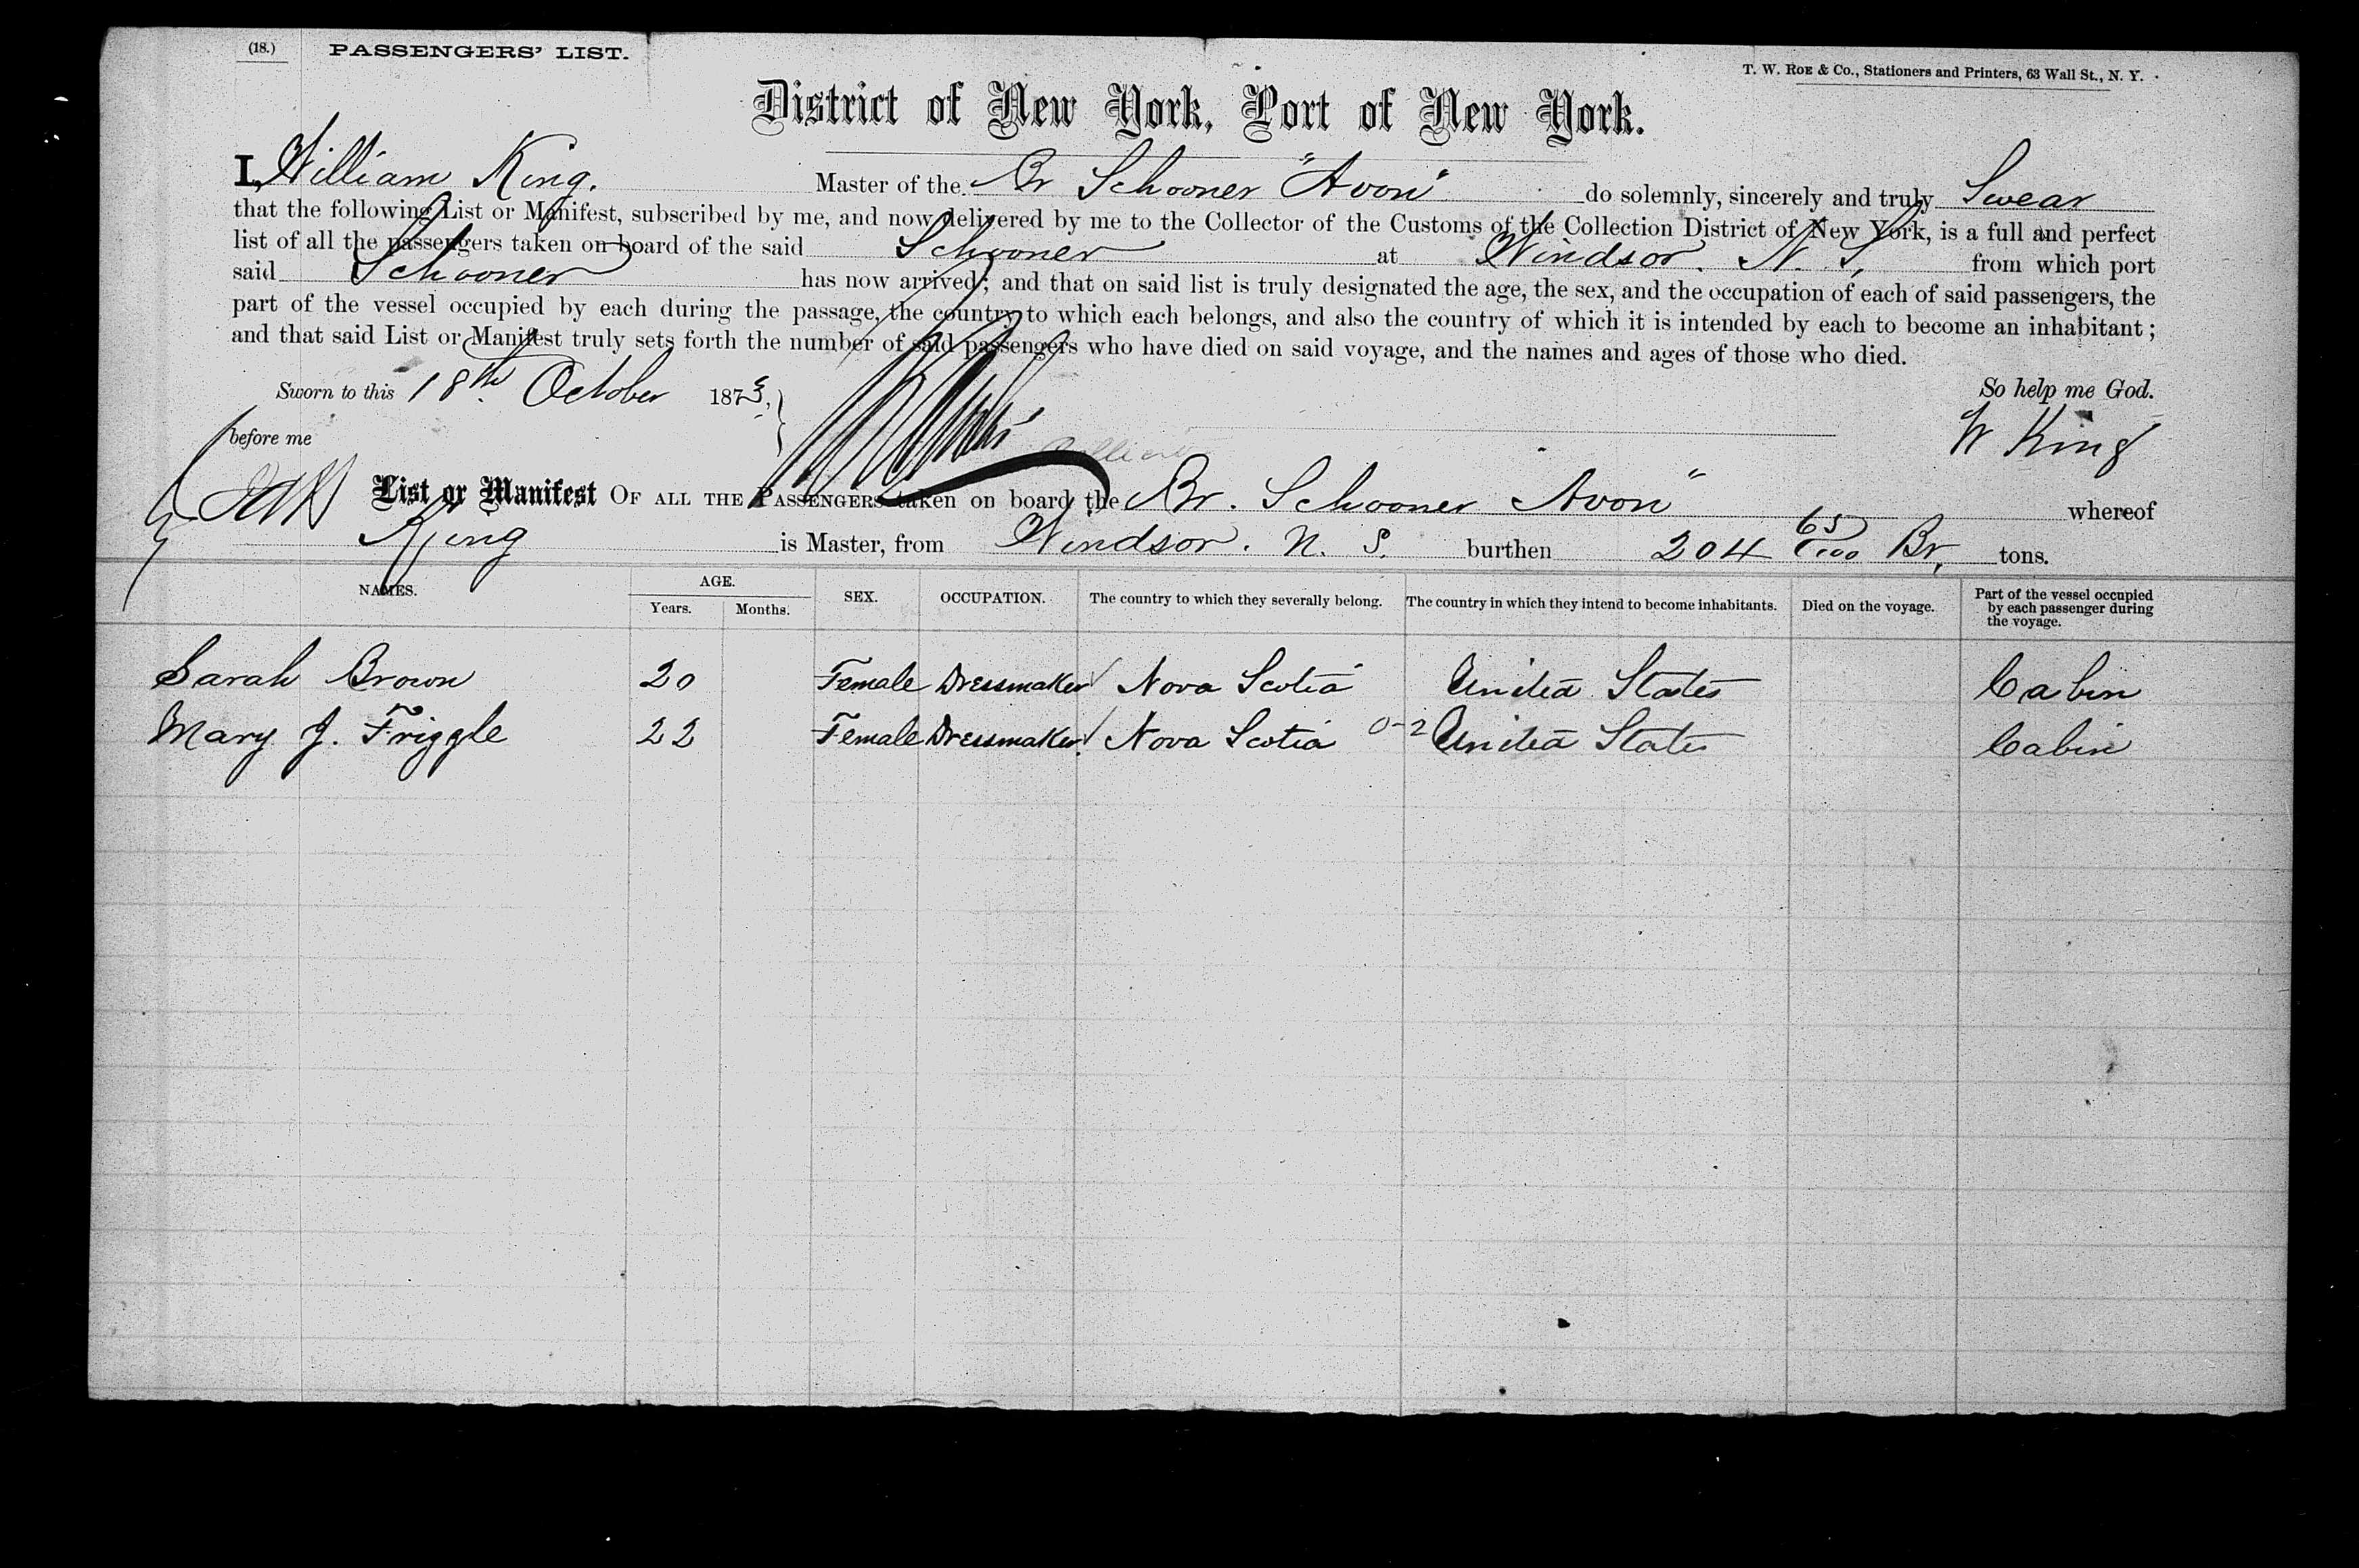 (18.) PASSENGERS' LIST.
T. W. ROE & Co., Stationers and Printers, 63 Wall St., N. Y.
District of New York, Port of New York.
I, William King. Master of the Br Schooner "Avon" do solemnly, sincerely and truly Swear
that the following List or Manifest, subscribed by me, and now delivered by me to the Collector of the Customs of the Collection District of New York, is a full and perfect
list of all the passengers taken on board of the said Schooner at Windsor. N. S, from which port
said Schooner has now arrived; and that on said list is truly designated the age, the sex, and the occupation of each of said passengers, the
part of the vessel occupied by each during the passage, the country to which each belongs, and also the country of which it is intended by each to become an inhabitant;
and that said List or Manifest truly sets forth the number of said passengers who have died on said voyage, and the names and ages of those who died.
Sworn to this 18th October 1873, So help me God.
before me W King
List or Manifest OF ALL THE PASSENGERS taken on board the Br. Schooner Avon" whereof
King is Master, from Windsor. N. S. burthen 204 65/100 Br, tons.
NAMES. AGE. SEX. OCCUPATION. The country to which they severally belong. The country in which they intend to become inhabitants. Died on the voyage. Part of the vessel occupied by each passenger during the voyage.
Years. Months.
Sarah Brown 20 Female Dressmaker Nova Scotia United States Cabin
Mary J. Friggle 22 Female Dressmaker Nova Scotia 0-2 United States Cabin